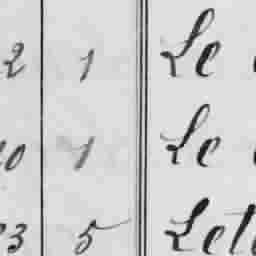 2 1 Le
10 1 Le
23 5 Lete